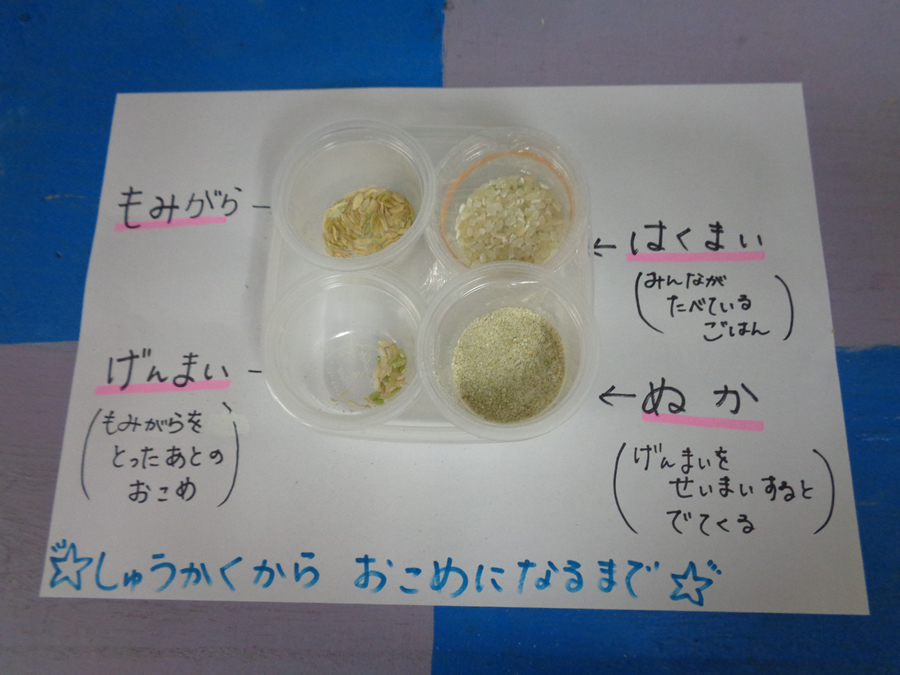 もみがら
げんまい
(もみがらを
とったあとの
おこめ)
← はくまい
(みんなが
たべている
ごはん)
← ぬか
(げんまいを
せいまいすると
でてくる)
☆しゅうかくから おこめになるまで☆